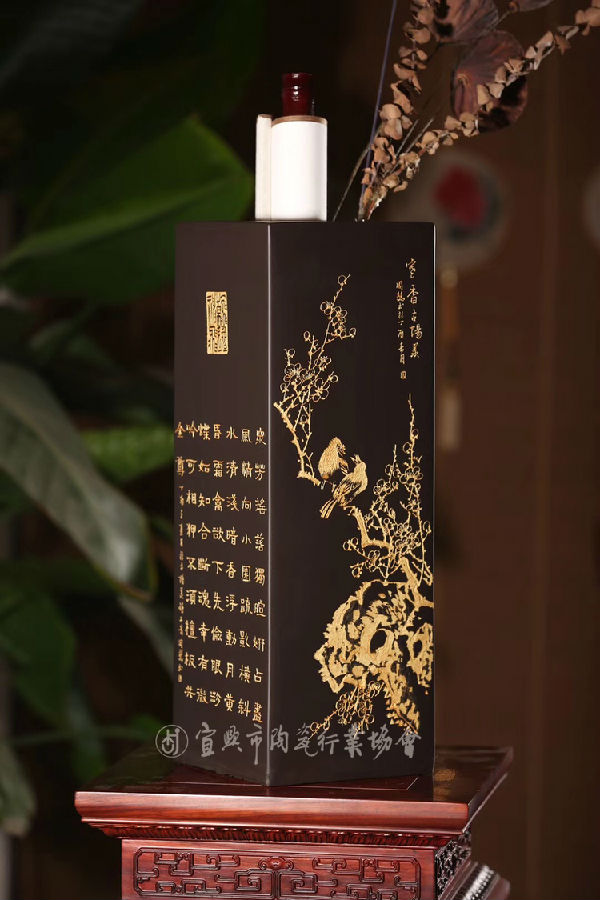 香古陽羨
丁酉春月
衆芳搖落獨暄妍占盡
風情向小園疏影橫斜
水清淺暗香浮動月黃
昏霜禽欲下先偷眼粉
蝶如知合斷魂幸有微
吟可相狎不須檀板共
金尊
宜興市陶瓷行業協會